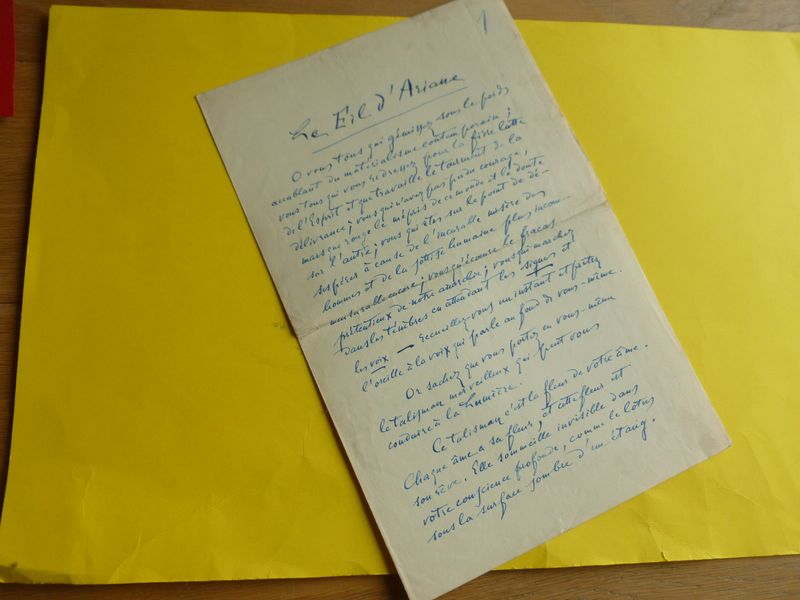 1
Le Fil d'Ariane
O vous tous qui gémissez sous le poids
accablant du matérialisme contemporain ;
vous tous qui vous redressez pour la fière lutte
de l'Esprit et que travaille le tourment de la
délivrance ; vous qui n'avez pas perdu courage,
mais que ronge le mépris de ce monde et le doute
sur l'autre ; vous qui êtes sur le point de dé-
sespérer à cause de l'incurable misère des
hommes et de la sottise humaine plus incom-
mensurable encore ; vous qu'écœure le fracas
prétentieux de notre anarchie ; vous qui marchez
dans les ténèbres en attendant les signes et
les voix — Recueillez-vous un instant et prêtez
l'oreille à la voix qui parle au fond de vous-même.
Or sachez que vous portez en vous-même
le talisman merveilleux qui peut vous
conduire à la Lumière.
Ce talisman c'est la fleur de votre âme.
Chaque âme a sa fleur, et cette fleur est
son rêve. Elle sommeille invisible dans
votre conscience profonde, comme le lotus
sous la surface sombre d'un étang.